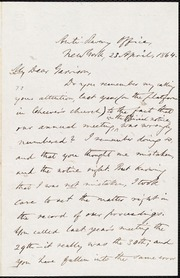 Anti Slavery Office,
New York 23 April, 1864.
My Dear Garrison,
Do you remember my calling
your attention, last year from the platform
in Cheever's church, to the fact that
our annual meeting, in the official notice, was wrongly
numbered? I remember doing so
and that you thought me mistaken
and the notice right. But knowing
that I was not mistaken, I took
care to set the matter right in
the record of our proceedings.
You called last year's meeting the
29th it really was the 30th; and
you have fallen into the same error